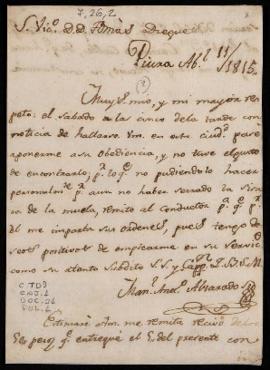 7, 26, 2
S. Vic.º D. D. Tomas Dieguez
Piura Ab.l 11/1815
Muy S. mio, y mi mayor res
peto: el sabado a las cinco de la tarde con
noticia de hallarse Vm. en esta ciud.d pasé
aponerme a su Obediencia, y no tuve el gusto
de encontrarlo; p.r lo q.e no pudiendolo hacer
personalm.te p.r aun no haber serrado la
de la muela, remito al conductor p.a q.e p.r
el me imparta sus ordenes, pues tengo de
seos positivos de emplearme en su servicio
como su atento Subdito S. S. y Capp.n Q. B. S. M.
Man.l Ant.o Alvarado
C. TD3
CAJ. 1
DOC. 26
FOL. 2
Estimaré a Vm. me remita recivo de los
pesos q.e entregué el G. del presente con